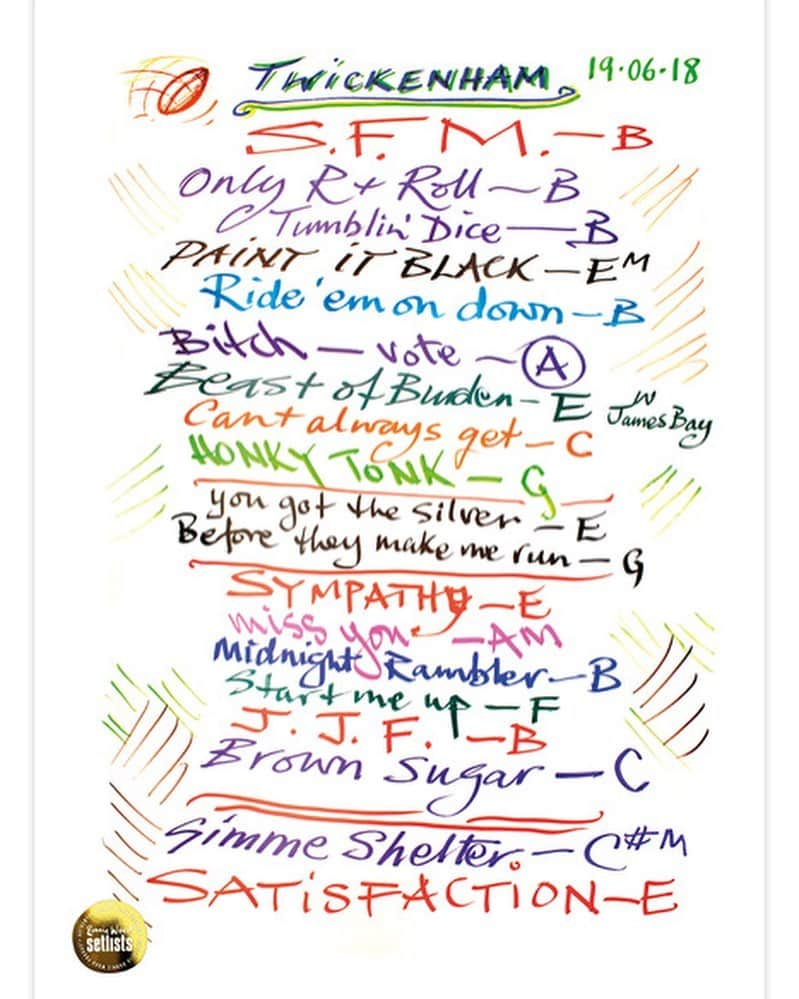 TWICKENHAM 19·06·18
S.F.M. — B
Only R + Roll — B
Tumblin' Dice — B
PAINT iT BLACK — EM
Ride 'em on down — B
Bitch — vote — A
Beast of Burden — E w James Bay
Cant always get — C
HONKY TONK — G
you got the silver — E
Before they make me run — G
SYMPATHY — E
miss you — AM
Midnight Rambler — B
Start me up — F
J. J. F. — B
Brown Sugar — C
Gimme Shelter. — C#M
SATiSFACTiON — E
Ronnie Wood
setlists